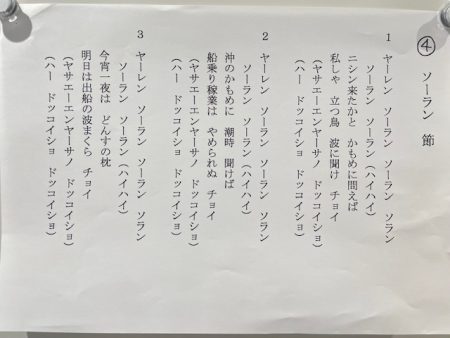 ④ ソーラン 節
1 ヤーレン ソーラン ソーラン ソラン
ソーラン ソーラン(ハイハイ)
ニシン来たかと かもめに問えば
私しゃ 立つ鳥 波に聞け チョイ
(ヤサエーエンヤーサノ ドッコイショ)
(ハー ドッコイショ ドッコイショ)
2 ヤーレン ソーラン ソーラン ソラン
ソーラン ソーラン(ハイハイ)
沖のかもめに 潮時 聞けば
船乗り稼業は やめられぬ チョイ
(ヤサエーエンヤーサノ ドッコイショ)
(ハー ドッコイショ ドッコイショ)
3 ヤーレン ソーラン ソーラン ソラン
ソーラン ソーラン(ハイハイ)
今宵一夜は どんすの枕
明日は出船の波まくら チョイ
(ヤサエーエンヤーサノ ドッコイショ)
(ハー ドッコイショ ドッコイショ)